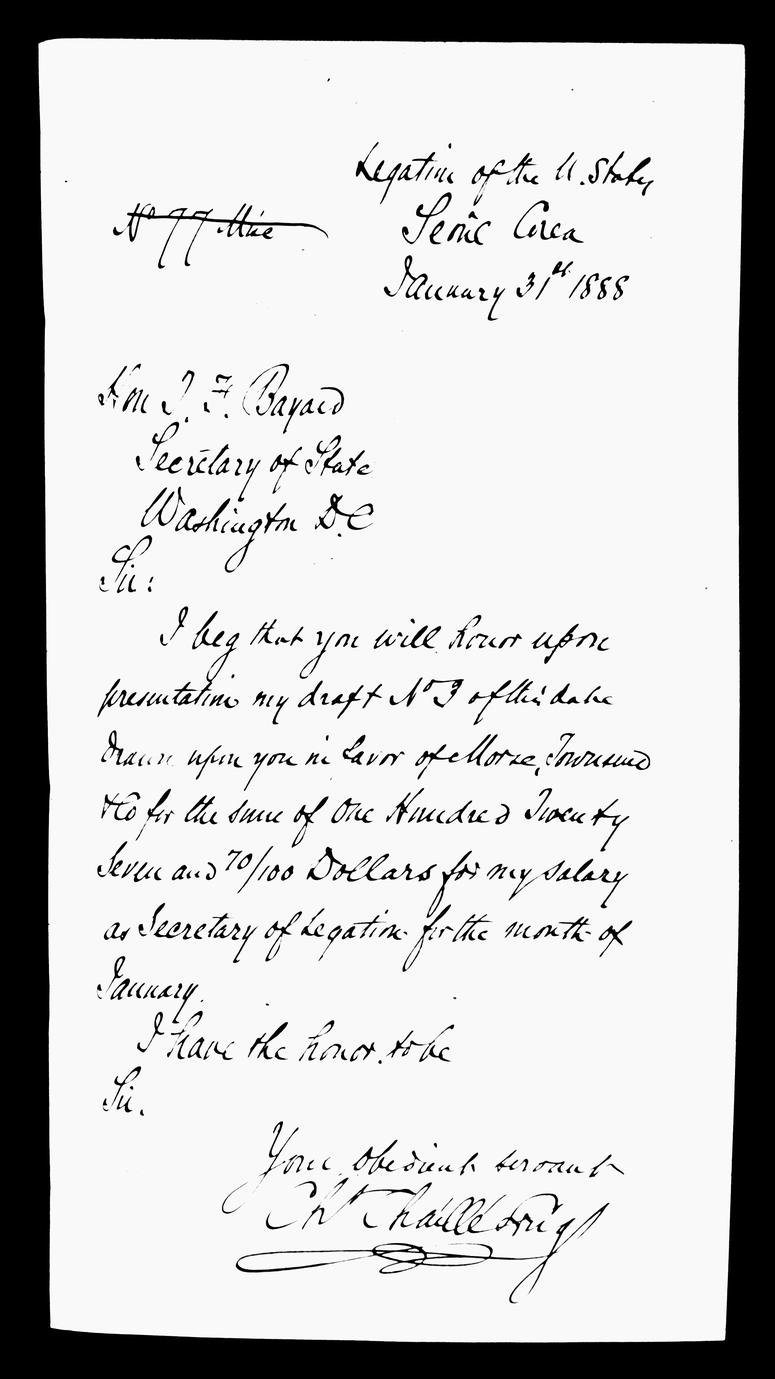 Legation of the U. States
Nº 77 Misc
Seoul Corea
January 31st 1888
Hon T. F. Bayard
Secretary of State
Washington D.C
Sir:
I beg that you will honor upon
presentation my draft Nº 3 of this date
drawn upon you in favor of Morse, Townsend
& Co for the sum of One Hundred Twenty
Seven and 70/100 Dollars for my salary
as Secretary of Legation for the month of
January.
I have the honor to be
Sir.
Your obedient servant
Ch. Chaillé Long